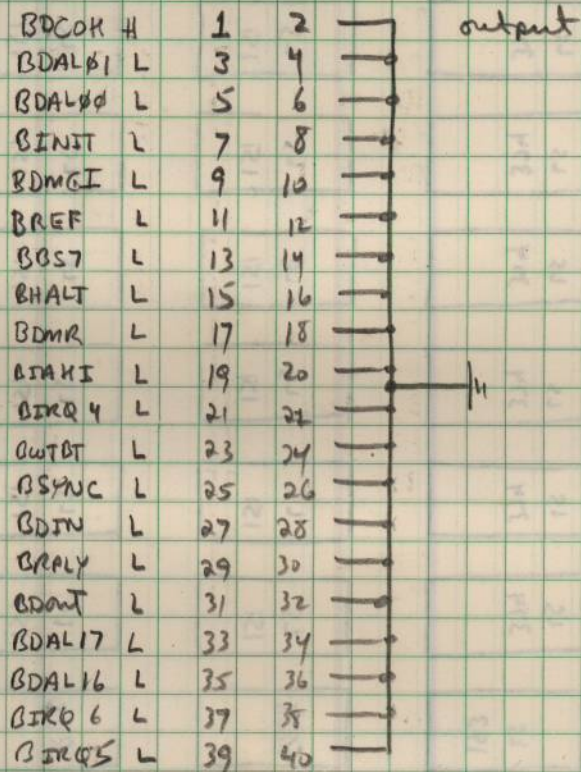 BDCOH H 1 2 output
BDALØ1 L 3 4
BDALØØ L 5 6
BINIT L 7 8
BDMGI L 9 10
BREF L 11 12
BBS7 L 13 14
BHALT L 15 16
BDMR L 17 18
BIAKI L 19 20
BIRQ 4 L 21 22
BWTBT L 23 24
BSYNC L 25 26
BDIN L 27 28
BRPLY L 29 30
BDOUT L 31 32
BDAL17 L 33 34
BDAL16 L 35 36
BIRQ 6 L 37 38
BIRQ5 L 39 40